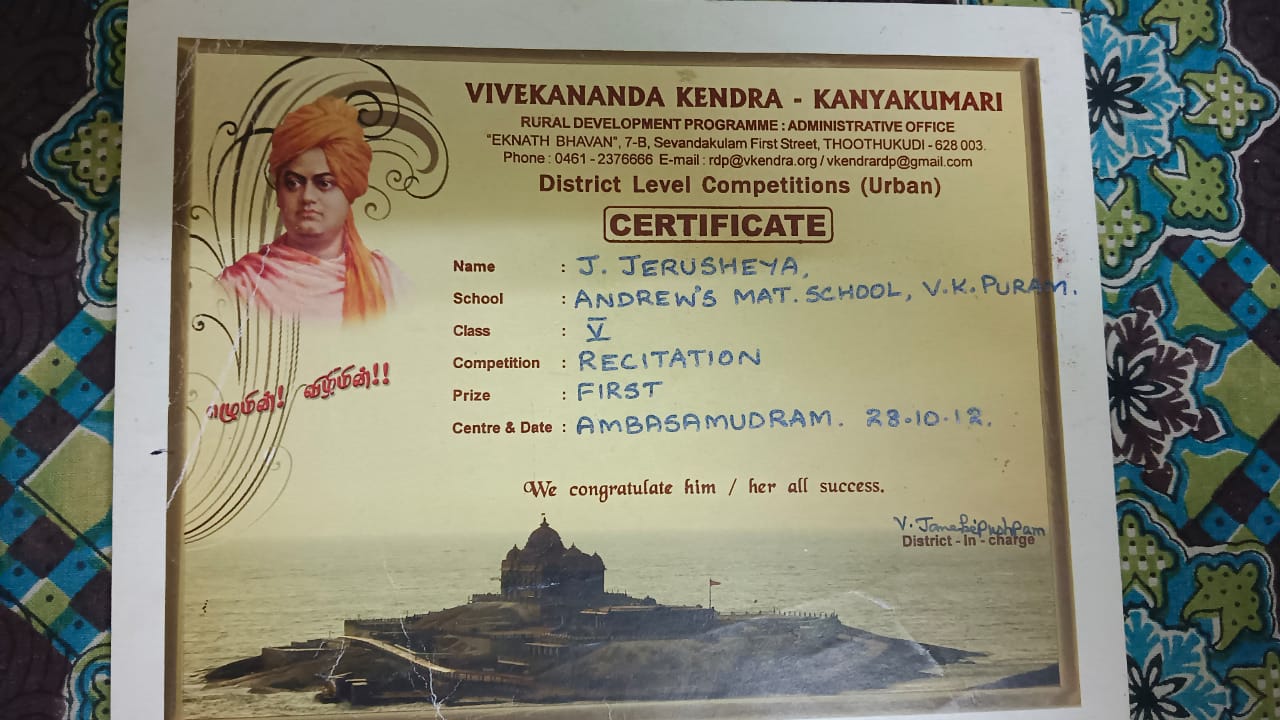 VIVEKANANDA KENDRA - KANYAKUMARI
RURAL DEVELOPMENT PROGRAMME : ADMINISTRATIVE OFFICE
"EKNATH BHAVAN", 7-B, Sevandakulam First Street, THOOTHUKUDI - 628 003.
Phone : 0461 - 2376666 E-mail : rdp@vkendra.org / vkendrardp@gmail.com
District Level Competitions (Urban)
CERTIFICATE
Name : J. JERUSHEYA,
School : ANDREW'S MAT. SCHOOL, V.K. PURAM.
Class : V
Competition : RECITATION
Prize : FIRST
Centre & Date : AMBASAMUDRAM. 28.10.12.
எழுமின்! விழிமின்!!
We congratulate him / her all success.
V. Janakipushpam
District - In - charge